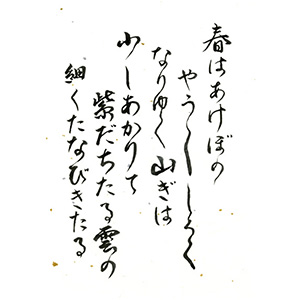 春はあけぼの
やう〱しろく
なりゆく山ぎは
少しあかりて
紫だちたる雲の
細くたなびきたる